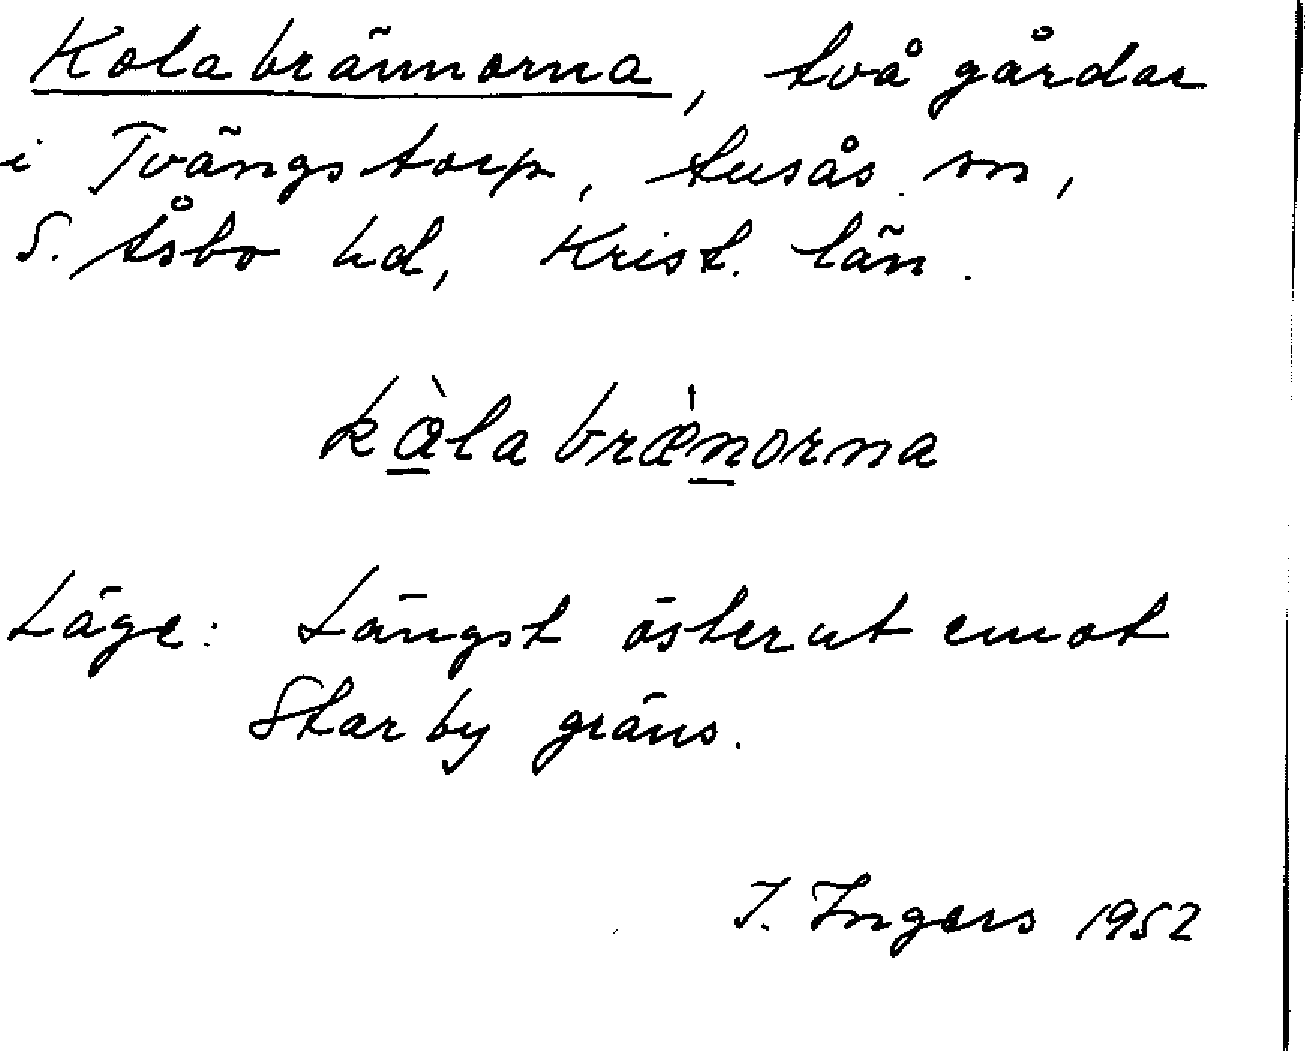 Kolabrännorna, två gårdar
i Tvängstorp, Ausås sn,
S. Åsbo hd, Krist. län.
kàla bræ̍norna
Läge: Längst österut emot
Starby gräns.
I. Ingers 1952